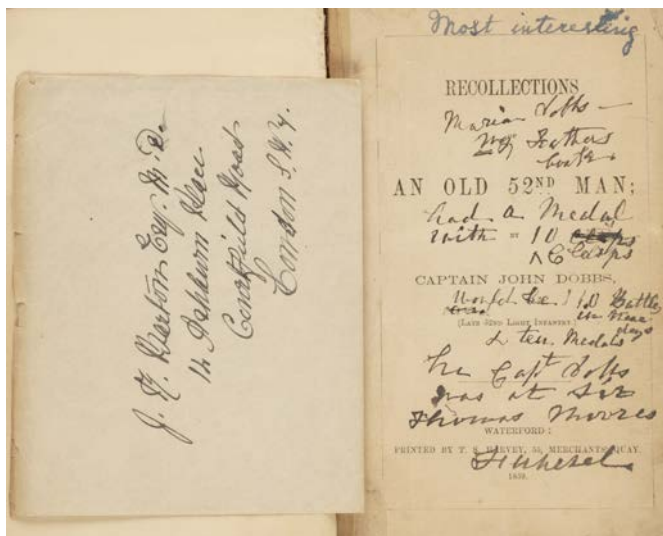 J. H. Warton Esqr. M.D.
12 Ashburn Place
Courtfield Road
London S.W.7.
Most interesting
RECOLLECTIONS
Maria Dobbs —
my Fathers
book.
AN OLD 52ND MAN;
had a Medal
with BY 10
Clasps
CAPTAIN JOHN DOBBS,
10 Battles
in those
days
(LATE 52ND LIGHT INFANTRY.)
& ten Medals
Capt Dobbs
was at Sir
Thomas Moores
WATERFORD:
PRINTED BY T. S. HARVEY, MERCHANTS QUAY.
Funeral
1859.